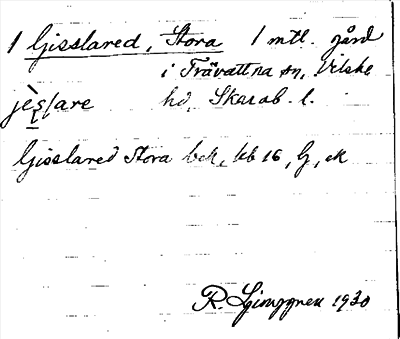 1 Gisslared, Stora 1 mtl. gård
i Trävattna sn, Vilske
jèslare hd, Skarab. l.
Gisslared Stora bck, kb 16, G, ek
R. Ljunggren 1930